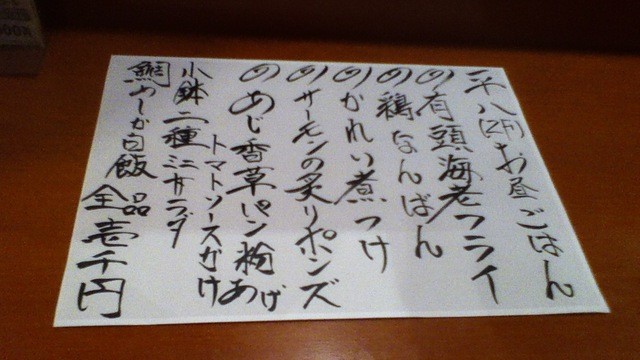 一平八(2F)お昼ごはん
の有頭海老フライ
の鶏なんばん
のかれい煮つけ
のサーモンの炙りポンズ
のあじ香草パン粉あげ
トマトソースがけ
小鉢二種ミニサラダ
鯛めしか白飯
全品壱千円